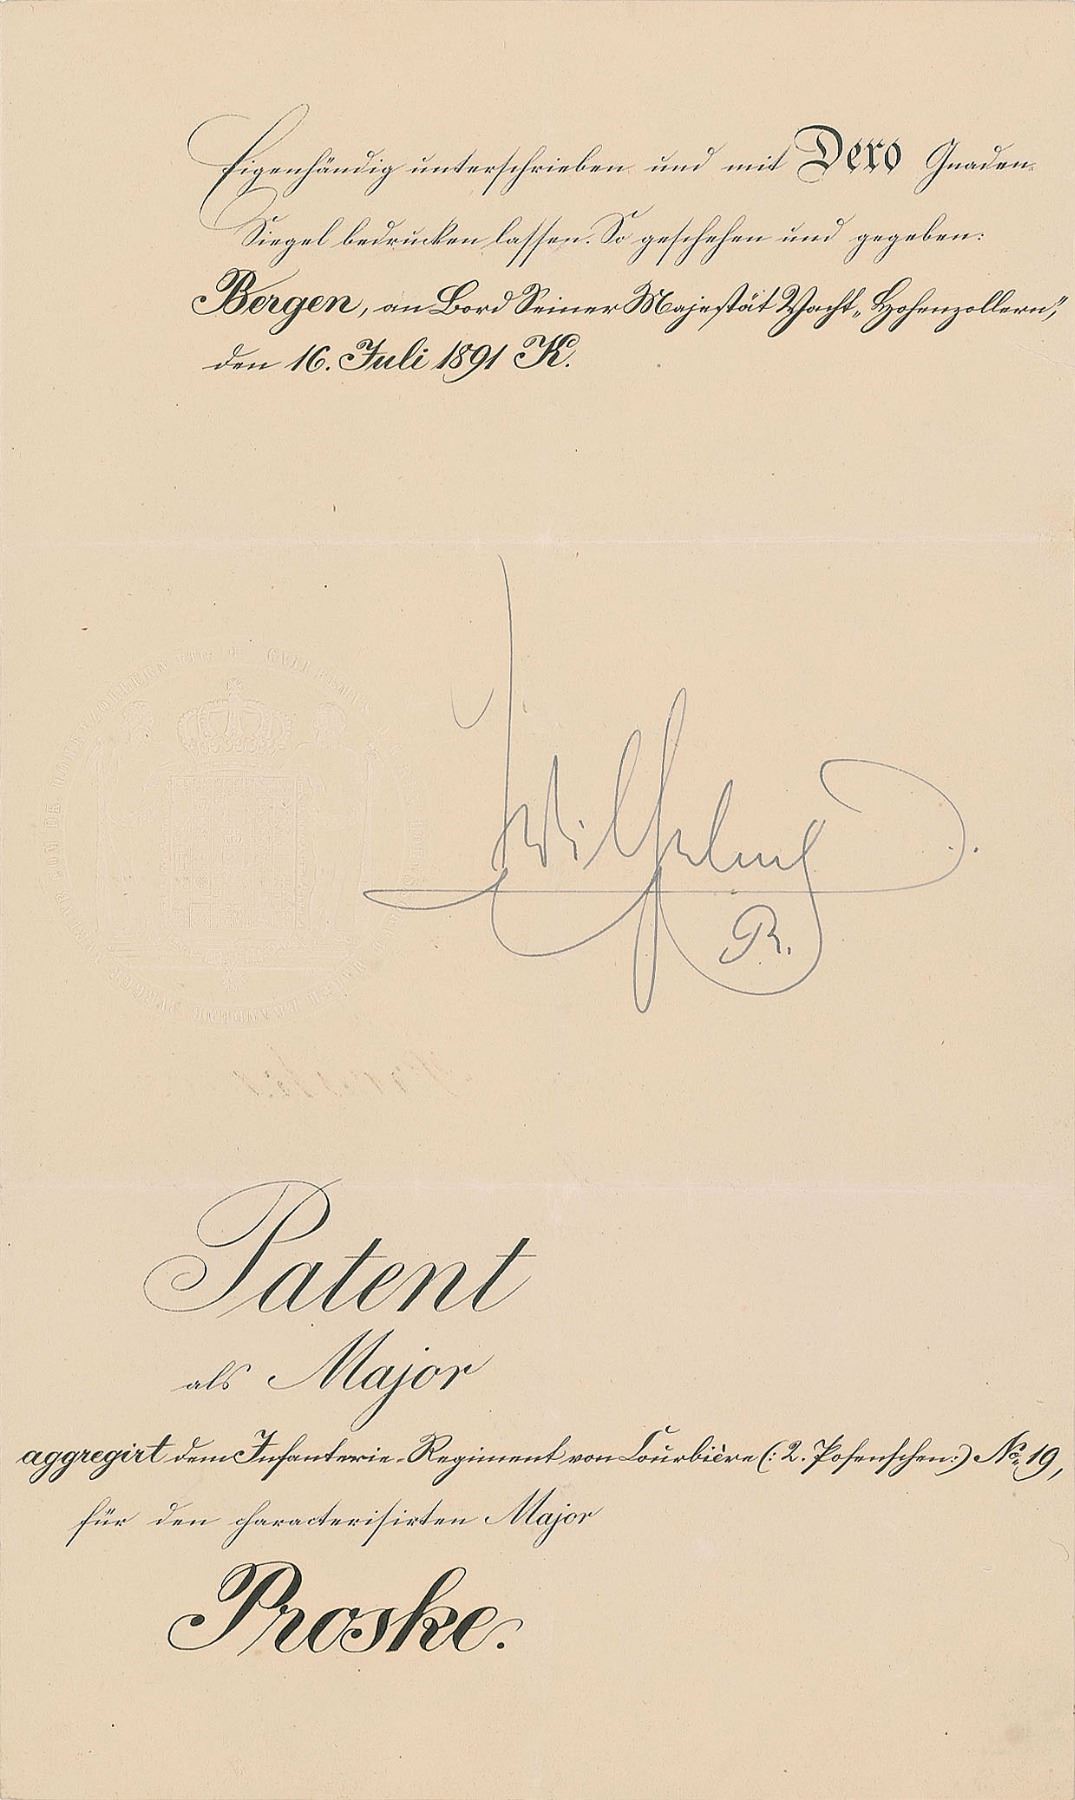 Eigenhändig unterschrieben und mit Dero Gnaden-
Siegel bedrucken lassen. So geschehen und gegeben:
Bergen, an Bord Seiner Majestät Yacht „Hohenzollern",
den 16. Juli 1891 K.
Wilhelm
R.
Patent
als Major
aggregirt dem Infanterie-Regiment von Courbière (: 2. Posenschen :) No. 19,
für den characterisirten Major
Proske.